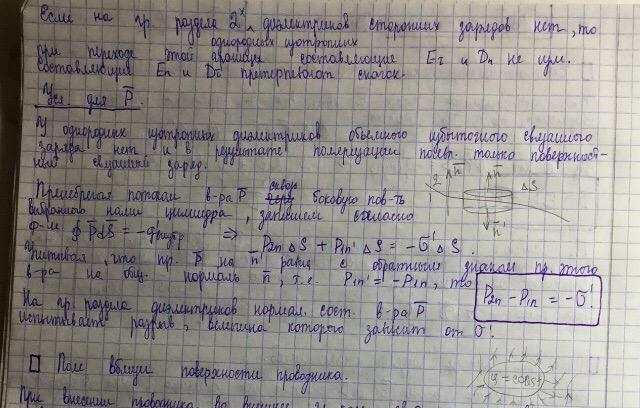 Если на гр. раздела 2х диэлектриков сторонних зарядов нет, то
однородных изотропных
при переходе этой границы составляющие Eτ и Dn не изм.
составляющие En и Dτ претерпевают скачок.
Усл. для P̅.
У однородных изотропных диэлектриков объемного избыточного связанного
заряда нет и в результате поляризации появл. только поверхност-
ный связанный заряд.
2 n̅ n̅ ΔS
n̅'
Пренебрегая потоком в-ра P̅ сквозь боковую пов-ть
выбранного нами цилиндра, запишем согласно
ф-ле ∮P̅dS̅ = -q'внутр ⇒ P2n ΔS + P1n' ΔS = -σ' ΔS.
Учитывая, что пр. P̅ на n̅' равна с обратным знаком пр. этого
в-ра на общ. нормаль n̅, т.е. P1n' = -P1n, то P2n - P1n = -σ'!
На гр. раздела диэлектриков нормал. сост. в-ра P̅
испытывает разрыв, величина которого зависит от σ'.
Поле вблизи поверхности проводника.
φ = const
При внесении проводника во внешнее